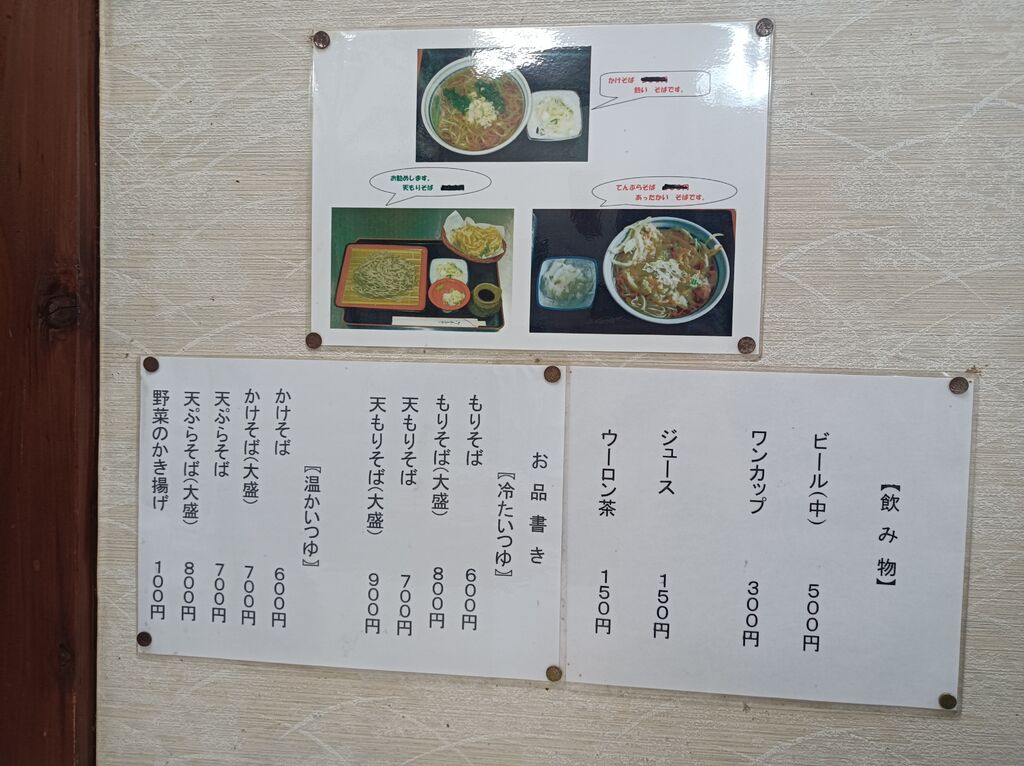 かけそば
熱い そばです。
お勧めします。
天もりそば
てんぷらそば
あったかい そばです。
【飲み物】
ビール(中) 500円
ワンカップ 300円
ジュース 150円
ウーロン茶 150円
お品書き
〖冷たいつゆ〗
もりそば 600円
もりそば(大盛) 800円
天もりそば 700円
天もりそば(大盛) 900円
〖温かいつゆ〗
かけそば 600円
かけそば(大盛) 700円
天ぷらそば 700円
天ぷらそば(大盛) 800円
野菜のかき揚げ 100円